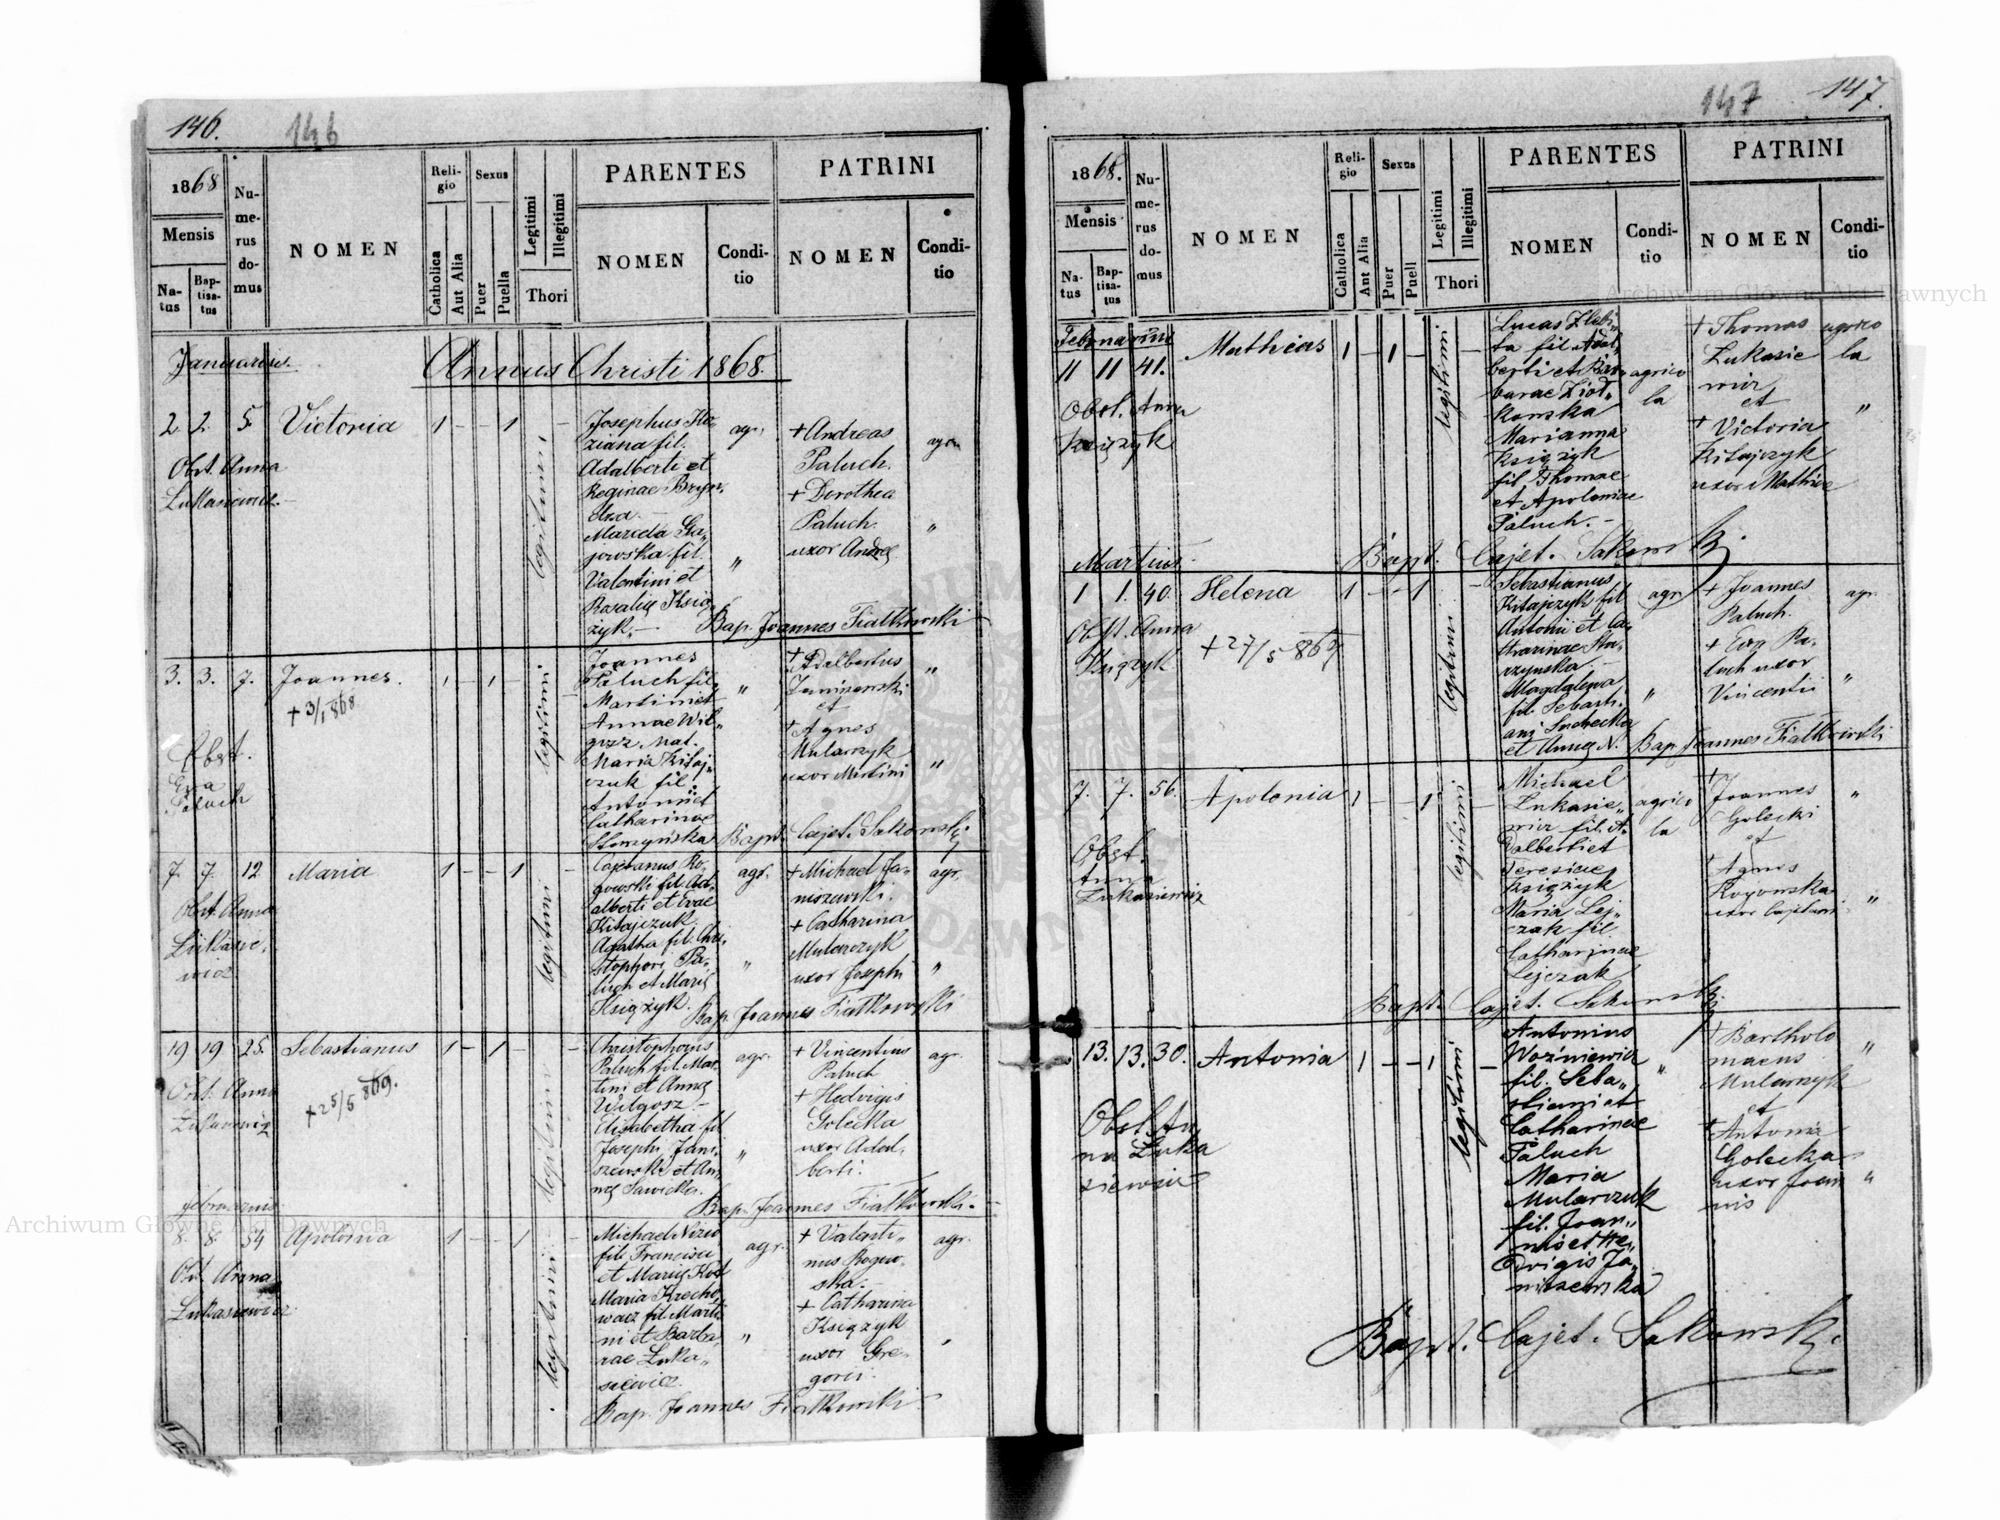 146.
146
1868
Mensis
Na-
tus
Bap-
tisa-
tus
Nu-
me-
rus
do-
mus
NOMEN
Reli-
gio
Catholica
Aut Alia
Sexus
Puer
Puella
Legitimi
Illegitimi
Thori
PARENTES
NOMEN
Condi-
tio
PATRINI
NOMEN
Condi-
tio
Januarius.
Annus Christi 1868.
2. 2. 5. Victoria 1 - - 1 -
Obst. Anna
Lukasiewicz
legitimi
Josephus Ko-
ziana fil.
Adalberti et
Reginae
Ga-
jowska fil.
Valentini et
Rosalię Księ-
żyk.
agr.
"
+ Andreas
Paluch.
+ Dorothea
Paluch.
uxor Andreę
agr.
"
Bap. Joannes Fiałkowski
3. 3. 7. Joannes. 1 - 1 -
+ 3/1 868
Obst.
Ewa
Paluch
legitimi
Joannes
Paluch fil.
Martini et
Annae Wil-
gosz Mat.
Maria Kitaj-
czuk fil.
Antonii et
Catharinae
"
+ Adalbertus
et
+ Agnes
Mularzyk
uxor Martini
"
"
Bapt. Cajet. Sakowski
7. 7. 12. Maria 1 - - 1 -
Obst. Anna
Łukasie-
wicz
legitimi
Cajetanus Ro-
gowski fil. Ad-
alberti et Evae
Kitajczuk.
Agatha fil. Chri-
stophori Pa-
luch et Marię
Księżyk.
agr.
"
+ Michael Ja-
niszewski.
+ Catharina
Mularczyk
uxor Josephi
agr.
"
Bap. Joannes Fiałkowski
19 19 25. Sebastianus 1 - 1 - -
+ 25/5 869.
Obst. Anna
Łukasiewicz
legitimi
Christophorus
Paluch fil. Mar-
tini et Annę
Wilgosz.
Elisabetha fil.
Josephi Jani-
szewski et An-
nę Sawicka.
agr.
"
+ Vincentius
Paluch
+ Hedvigis
Golecka
uxor Adal-
berti.
agr.
Bap. Joannes Fiałkowski.
Februarius
8. 8. 54 Apolonia 1 - - 1 -
Obst. Anna
Lukasiewicz
legitimi
Michael
fil. Francisci
et Marię
Maria Krecho-
wacz fil. Marti-
ni et Barba-
rae Luka-
siewicz.
agr.
"
+ Valenti-
nus Rogow-
ska.
+ Catharina
Księżyk
uxor Gre-
gorii.
agr.
"
Bap. Joannes Fiałkowski
147
147.
1868.
Mensis
Na-
tus
Bap-
tisa-
tus
Nu-
me-
rus
do-
mus
NOMEN
Reli-
gio
Catholica
Ant Alia
Sexus
Puer
Puell
Legitimi
Illegitimi
Thori
PARENTES
NOMEN
Condi-
tio
PATRINI
NOMEN
Condi-
tio
Februarius
11 11 41. Mathias 1 - 1 - -
Obst. Anna
Księżyk
legitimi
Lucas
fil. Adal-
berti et Bar-
barae Zioł-
kowska
Marianna
Księżyk
fil. Thomae
et Apoloniae
Paluch.
agrico
la
+ Thomas
Lukasie
wicz
et
+ Victoria
Kitajczyk
uxor Mathiae
agrico
la
"
Bapt. Cajet. Sakowski
Martius.
1 1. 40. Helena 1 - - 1 -
+ 27/5 869
Obst. Anna
Księżyk
legitimi
Sebastianus
Kitajczyk fil
Antonii et Ca-
tharinae Sta-
rzynska.
Magdalena
fil. Sebasti-
ani Suchecka
et Annę N.
agr.
"
+ Joannes
Paluch.
+ Eva Pa-
luch uxor
Vincentii
agr.
"
Bap. Joannes Fiałkowski
7. 7. 56. Apolonia 1 - - 1 -
Obst.
Anna
Lukasiewicz
legitimi
Michael
Lukasie-
wicz fil. A-
dalberti et
Teresiae
Księżyk
Maria Lej-
czak fil.
Catharinae
Lejczak
agrico
la
+
Joannes
Golecki
et
+
Agnes
Rogowska
uxor Cajetani
"
"
Bapt. Cajet. Sakowski
13. 13. 30. Antonia 1 - - 1 -
Obst. An-
na Luka
siewicz
legitimi
Antonius
Woźniewicz
fil. Seba-
stiani et
Catharinae
Paluch
Maria
Mularczuk
fil. Joan-
nis et He-
dvigis Ja-
niszewska
"
+ Bartholo
maeus
Mularczyk
et
+ Antonia
Golecka
uxor Joan
nis
"
"
Bapt. Cajet. Sakowski.
Archiwum Główne Akt Dawnych
Archiwum Główne Akt Dawnych